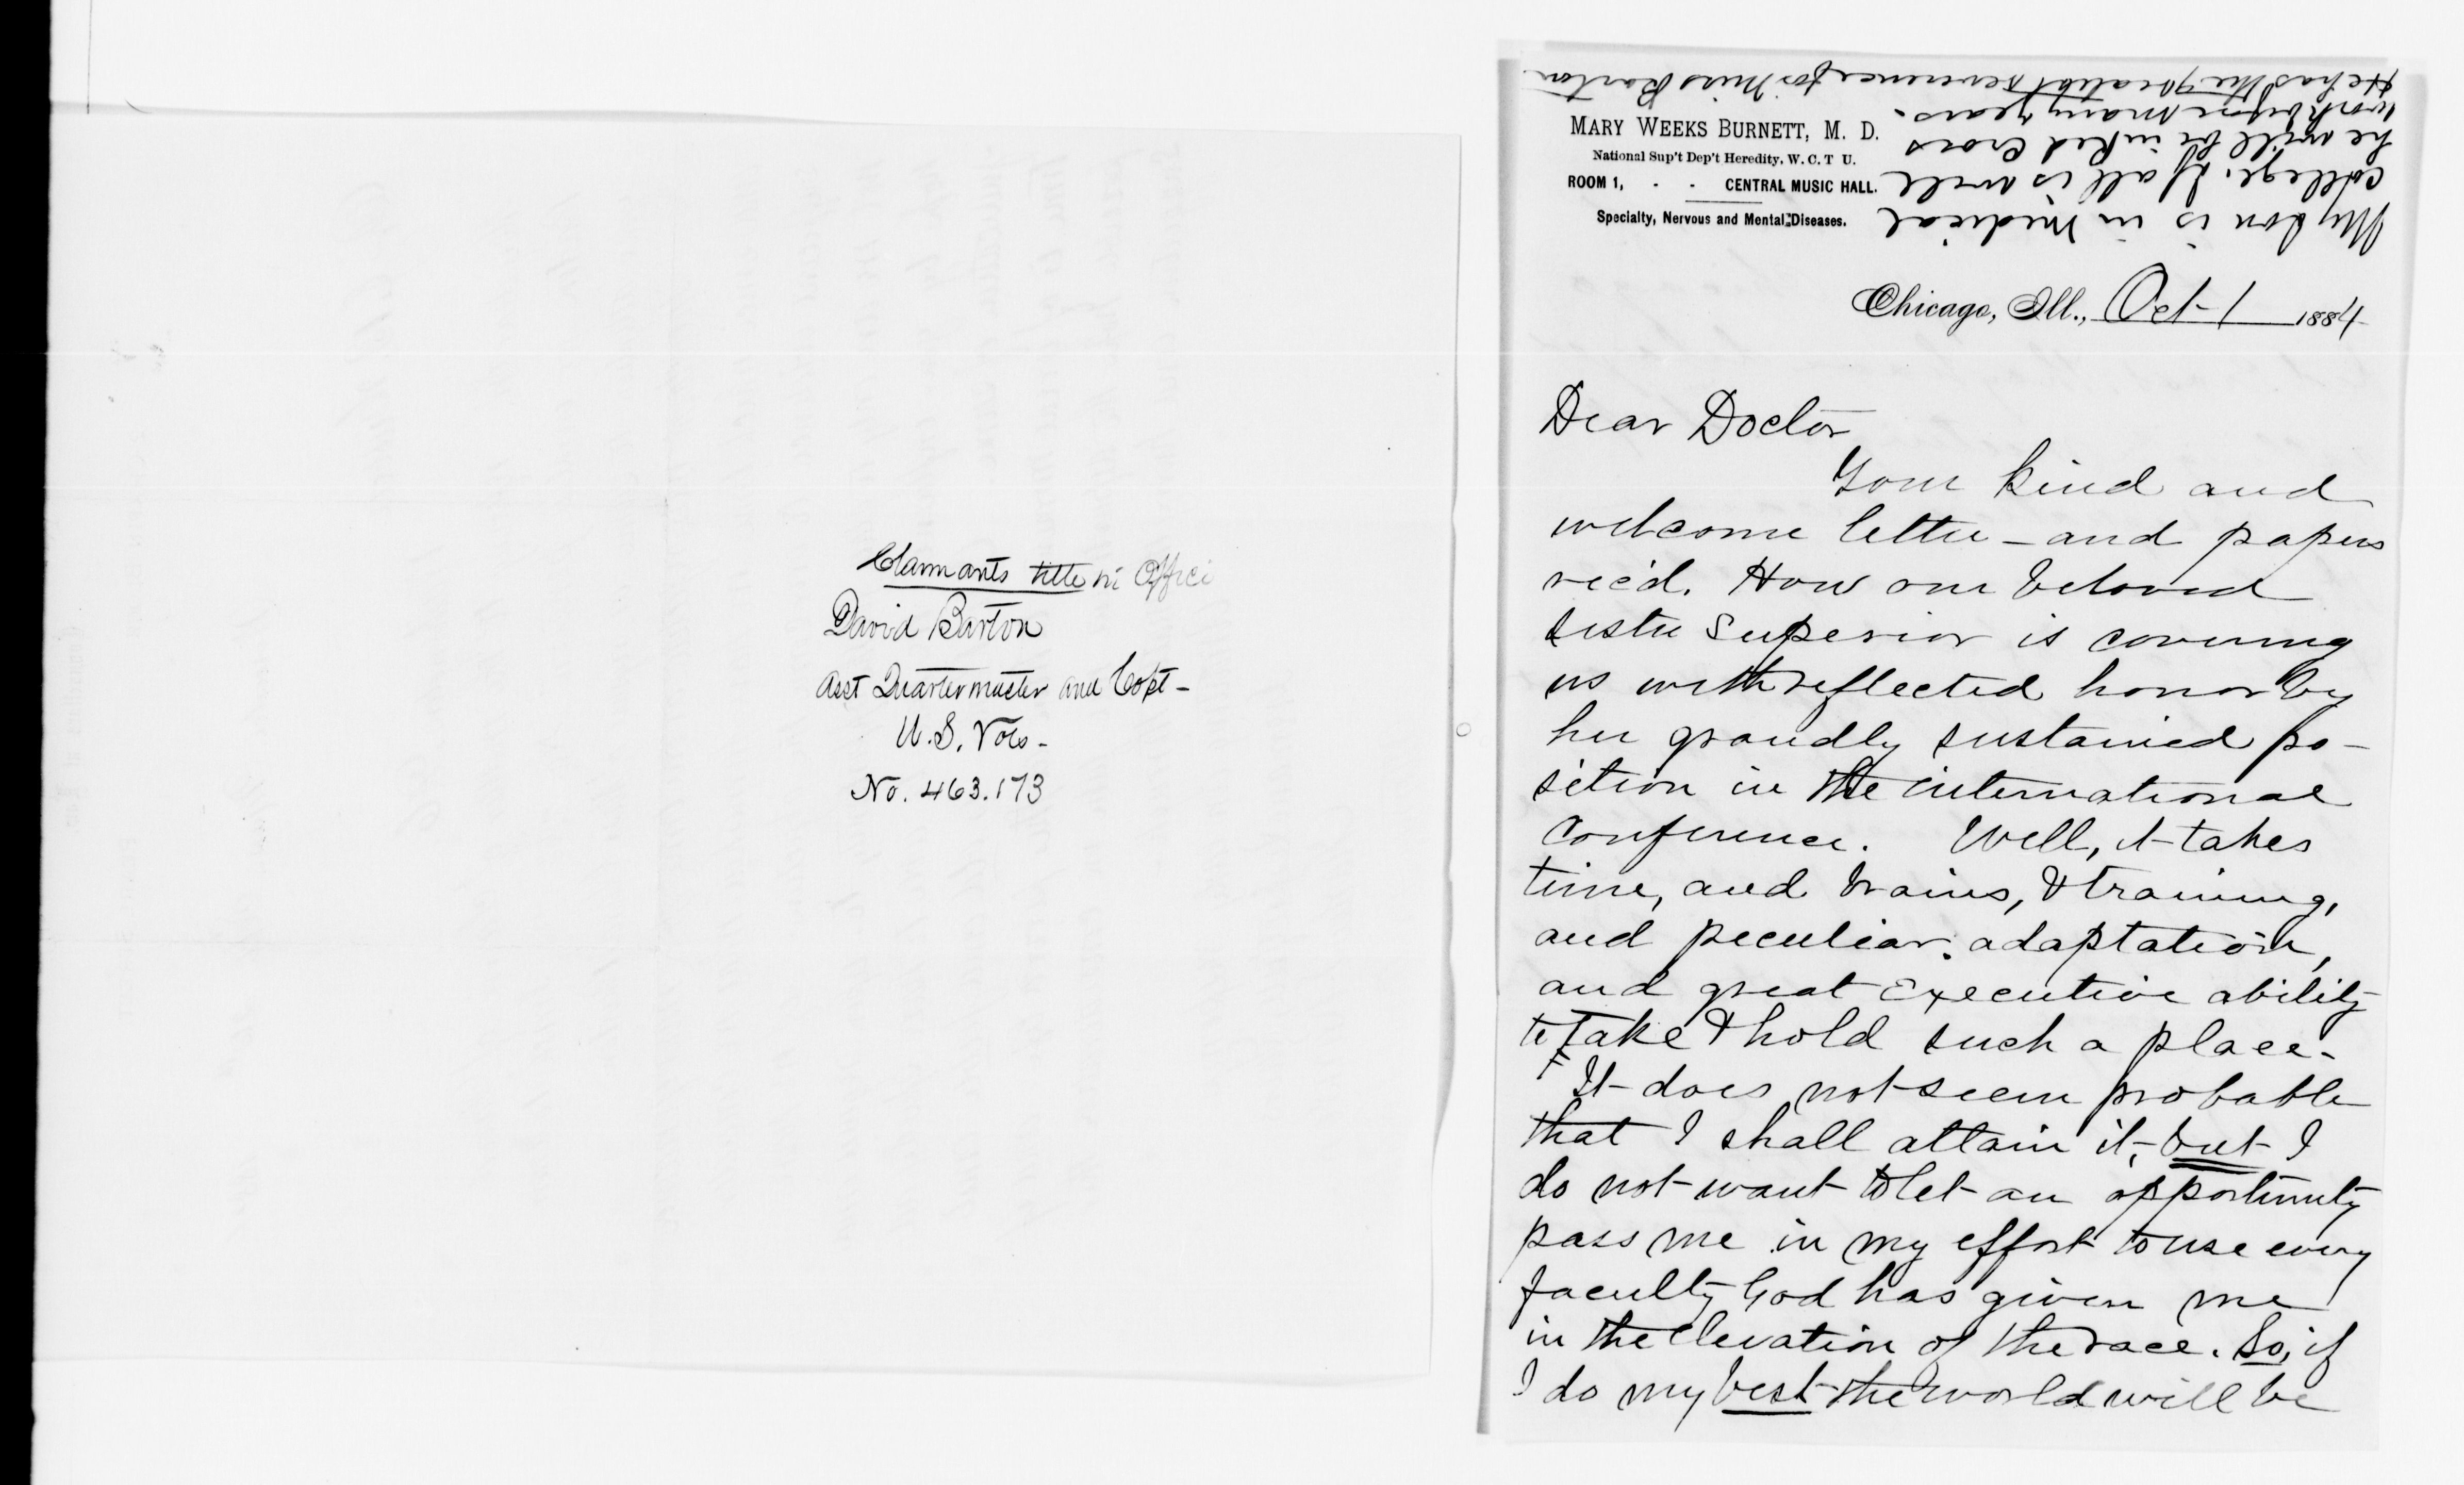 Claimants title in Office
David Barton
Asst Quartermaster and Capt-
U.S. Vols-
No. 463.173
My son is in Medical
College. If all is well
he will be in Red Cross
work before many years.
He has the greatest reverence for Miss Barton
MARY WEEKS BURNETT, M. D.
National Sup't Dep't Heredity, W. C. T U.
ROOM 1, - - CENTRAL MUSIC HALL.
Specialty, Nervous and Mental Diseases.
Chicago, Ill., Oct 1 1884
Dear Doctor
Your kind and
welcome letter - and papers
rec'd. How our beloved
sister Superior is covering
us with reflected honor by
her grandly sustained po-
sition in the international
Conference. Well, it takes
time, and brains, & training,
and peculiar adaptation,
and great executive ability
to take & hold such a place.
It does not seem probable
that I shall attain it, but I
do not want to let an opportunity
pass me in my effort to use every
faculty God has given me
in the elevation of the race. So, if
I do my best the world will be